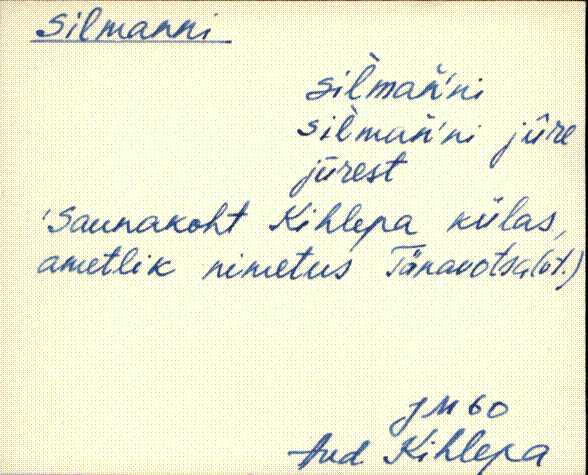 Silmanni
sil̀mań'ni
sil̀mań'ni jûre
jūrest
'Saunakoht Kihlepa külas,
ametlik nimetus Tänavotsa (vt.)
JM 60
Aud Kihlepa